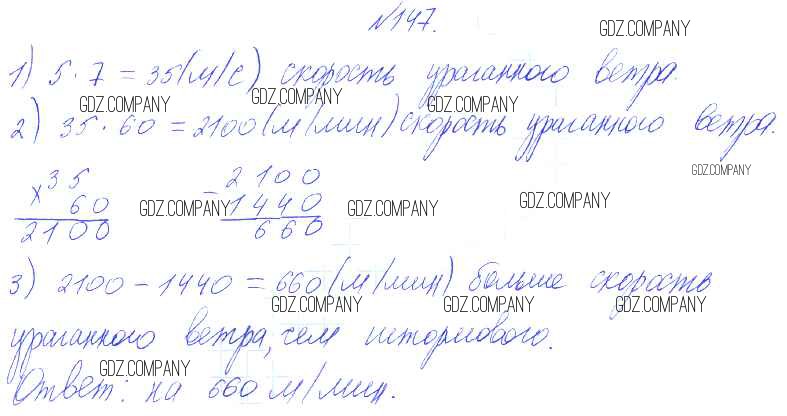 №147.
GDZ.COMPANY
1) 5·7=35(м/с) скорость ураганного ветра.
GDZ.COMPANY GDZ.COMPANY GDZ.COMPANY
2) 35·60=2100(м/мин) скорость ураганного ветра.
GDZ.COMPANY
×35 −2100
60 1440
2100 660
GDZ.COMPANY GDZ.COMPANY GDZ.COMPANY
3) 2100-1440=660(м/мин) больше скорость
GDZ.COMPANY GDZ.COMPANY GDZ.COMPANY
ураганного ветра, чем штормового.
GDZ.COMPANY
Ответ: на 660 м/мин.